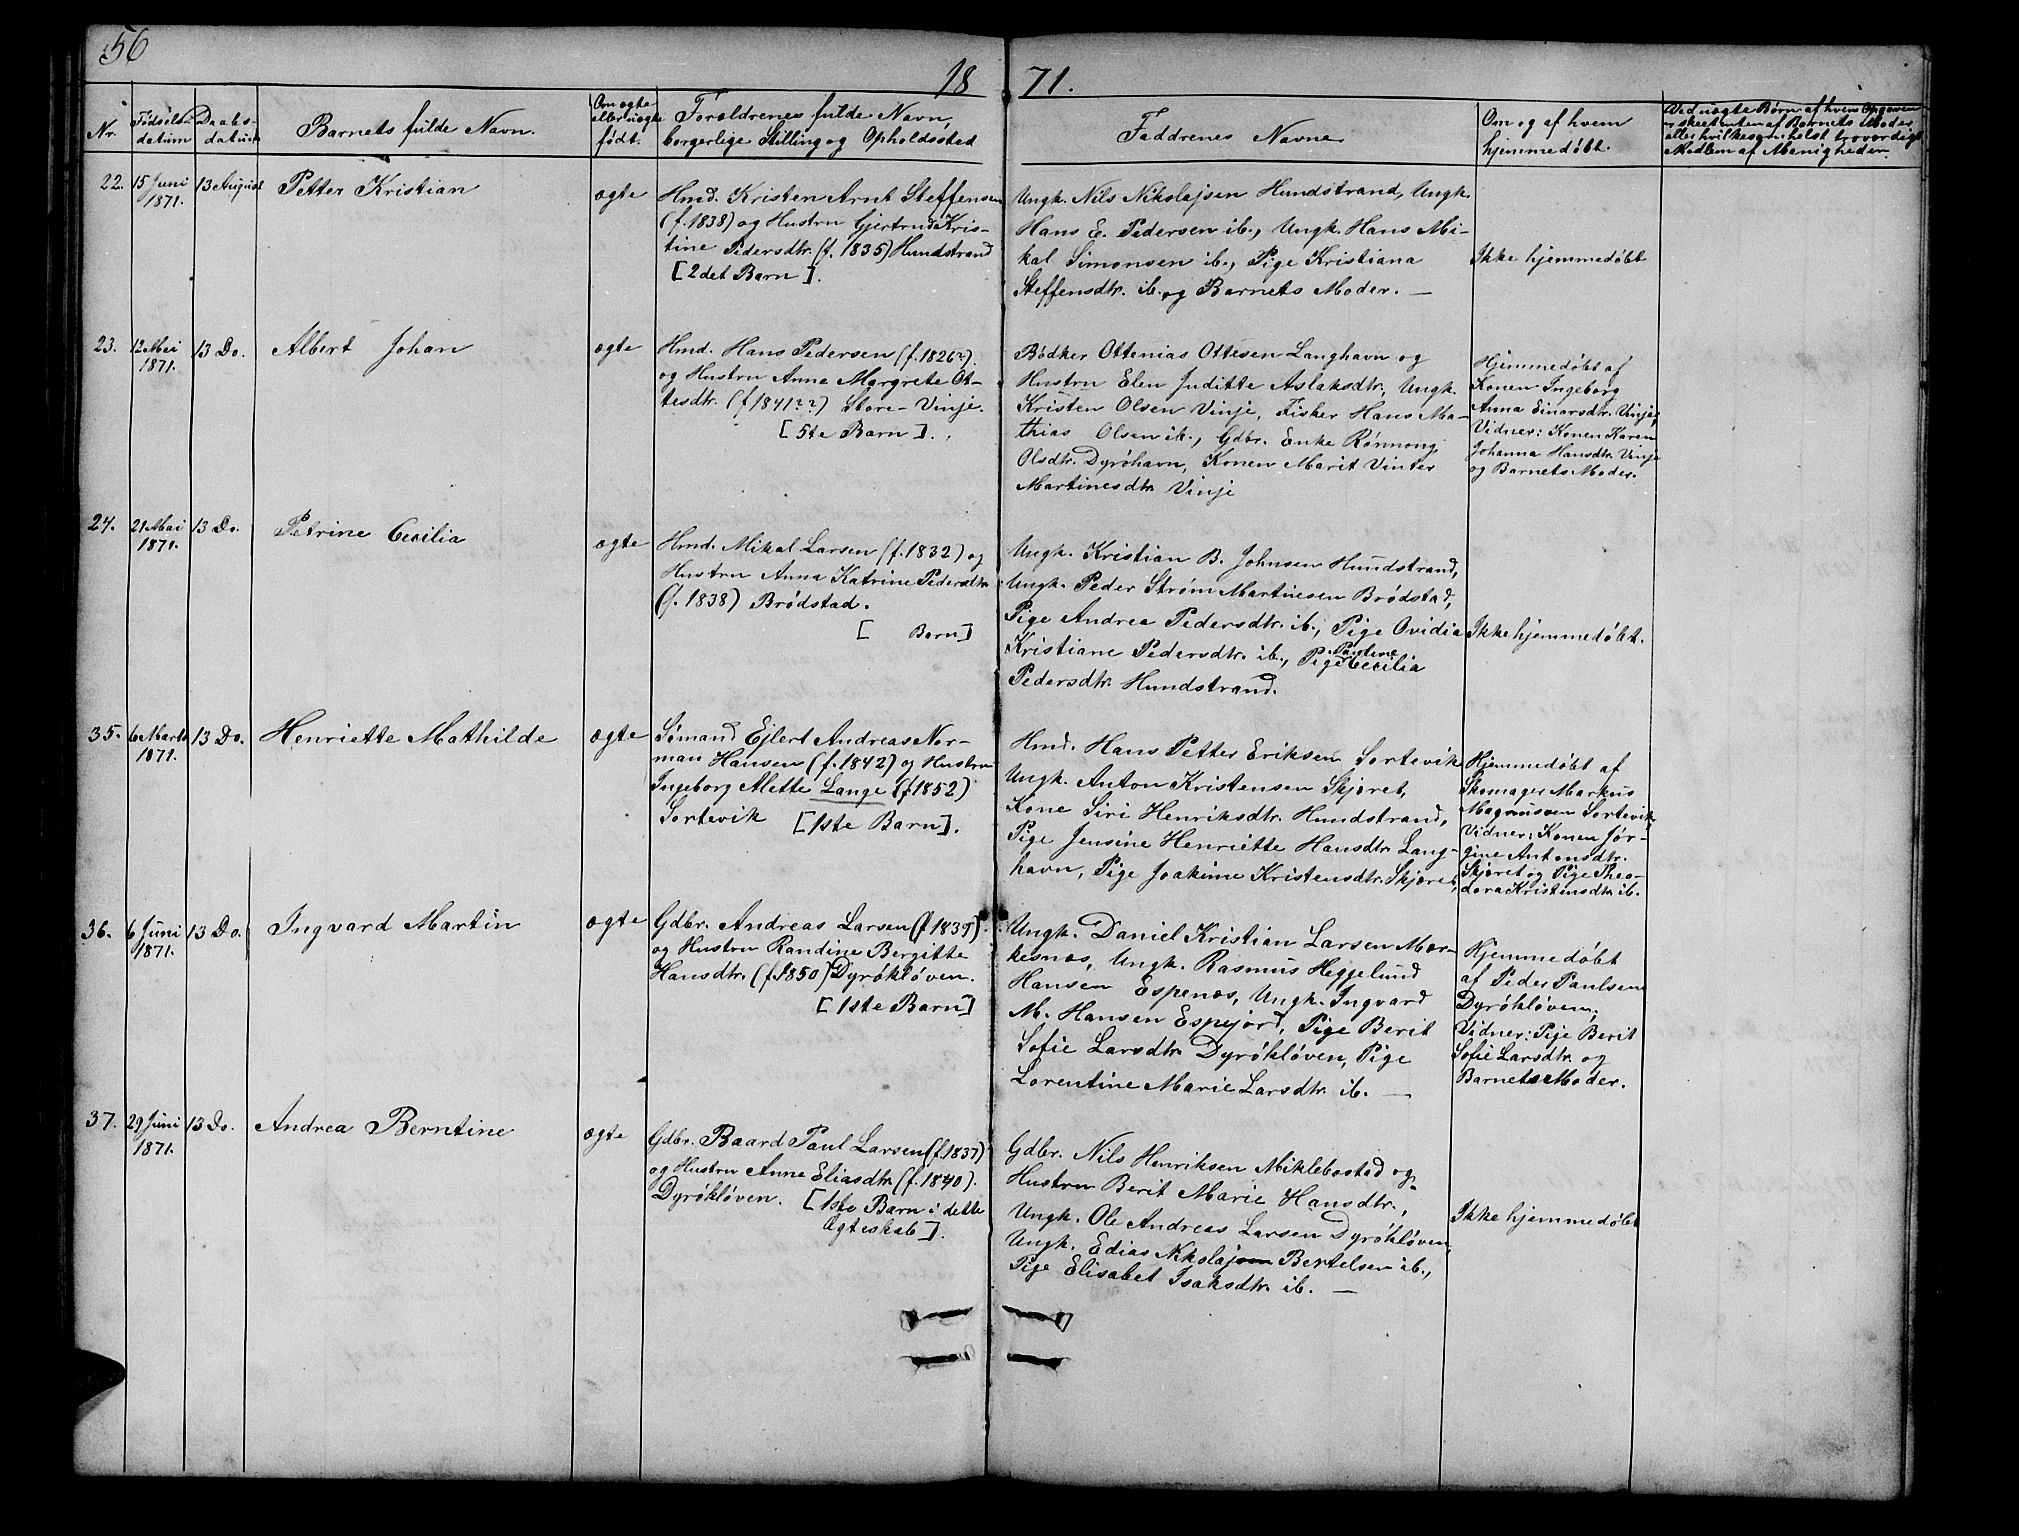 56
18 71.
Nr.
Födsels-
datum
Daabs-
datum
Barnets fulde Navn.
Om ægte
eller uægte
født.
Foræld­renes fulde Navn,
borgerlige Stilling og Opholdssted
Faddrenes Navne
Om og af hvem
hjemmedøbt.
Ved uægte Børn af hvem Opgaven
er skeet enten af Barnets Moder
eller hvilkesomhelst troværdigt
Medlem af Menigheden.
22.
15 Juni
1871.
13 August
Petter Kristian
ægte
Hmd. Kristen Arnt Steffensen
(f. 1838) og Hustru Gjertruda Kris-
tine Pedersdtr. (f. 1835) Hundstrand
[2det Barn].
Ungk. Nils Nikolajsen Hundstrand, Ungk.
Hans E. Pedersen ib., Ungk. Hans Mi-
kal Simonsen ib., Pige Kristiana
Steffensdtr. ib., og Barnets Moder. —
Ikke hjemmedøbt
23.
12 Mai
1871.
13 Do.
Albert Johan
ægte
Hmd. Hans Pedersen (f. 1826?)
og Hustru Anne Margrete Ot-
tesdtr. (f 1841??) Store-Vinje.
[5te Barn].
Bødker Ottenias Ottesen Langhavn og
Hustru Elen Juditte Aslaksdtr, Ungk.
Kristen Olsen Vinje, Fisker Hans Ma-
thias Olsen ib., Gdbr. Enke Rønnong
Olsdtr. Dyröhavn, Konen Marit Vinter
Martinesdtr. Vinje
Hjemmedøbt af
Konen Ingeborg
Anna Einarsdtr. Vinje;
Vidner: Konen Karen
Johanna Hansdtr. Vinje
og Barnets Moder.
24.
21 Mai
1871.
13 Do.
Petrine Cecilia
ægte
Hmd. Mikal Larsen (f. 1832) og
Hustru Anna Katrine Pedersdtr
(f. 1838) Brødstad.
[ Barn]
Ungk. Kristian B. Johnsen Hundstrand,
Ungk. Peder Strøm Martinesen Brødstad,
Pige Andrea Pedersdtr. ib., Pige Ovidia
Kristiane Pedersdtr. ib., Pige Pauline Cecilia
Pedersdtr. Hundstrand.
Ikke hjemmedøbt.
35.
6 Marts
1871.
13 Do.
Henriette Mathilde
ægte
Sømand Ejlert Andreas Nor-
man Hansen (f. 1842) og Hustru
Ingeborg Mette Lange (f 1852)
Sortevik [1ste Barn].
Hmd. Hans Petter Eriksen Sortevik
Ungk. Anton Kristensen Skjæret,
Kone Siri Henriksdtr. Hundstrand,
Pige Jensine Henriette Hansdtr. Lang-
havn, Pige Joakime Kristensdtr. Skjæret,
Hjemmedøbt af
Skomager Markus
Magnussen Sortevik,
Vidner: Konen Jør-
gine Antonsdtr.
Skjæret og Pige Theo-
dora Kristensdtr. ib.
36.
6 Juni
1871.
13 Do.
Ingvard Martin
ægte
Gdbr. Andreas Larsen (f 1839)
og Hustru Randine Bergitte
Hansdtr. (f. 1850) Dyrökløven.
[1ste Barn]
Ungk. Daniel Kristian Larsen Mær-
kesnæs, Ungk. Rasmus Heggelund
Hansen Espenæs, Ungk. Ingvard
M. Hansen Espejord, Pige Berit
Sofie Larsdtr. Dyrökløven, Pige
Lorentine Marie Larsdtr. ib. —
Hjemmedøbt
af Peder Paulsen
Dyrökløven,
Vidner: Pige Berit
Sofie Larsdtr. og
Barnets Moder.
37.
29 Juni
1871.
13 Do.
Andrea Berntine
ægte
Gdbr. Baard Paul Larsen (f. 1837)
og Hustru Anne Eliasdtr. (f. 1840).
Dyrökløven. [1ste Barn i dette
Ægteskab].
Gdbr. Nils Henriksen Miklebostad og
Hustru Berit Marie Hansdtr.,
Ungk. Ole Andreas Larsen Dyrökløven,
Ungk. Edias Nikolajsen Bertelsen ib.,
Pige Elisabet Isaksdtr. ib. —
Ikke hjemmedøbt